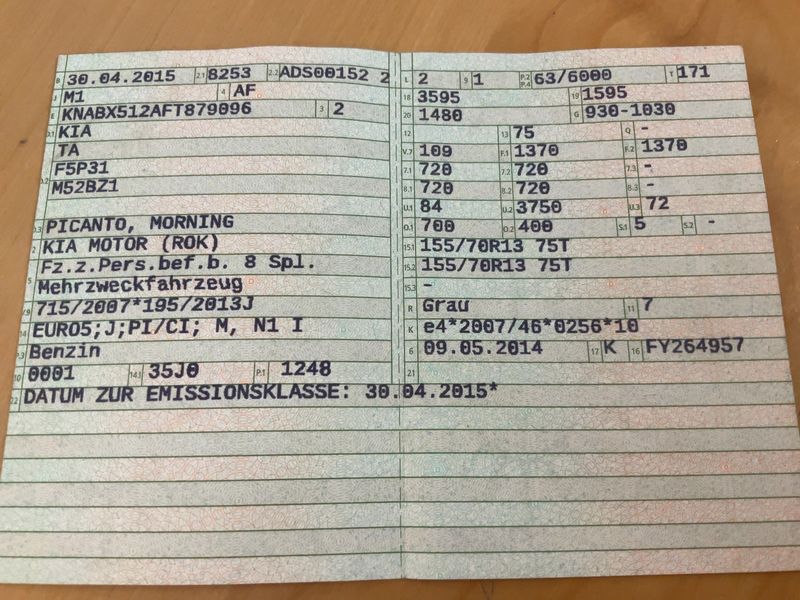 B 30.04.2015 2.1 8253 2.2 ADS00152 2
J M1 4 AF
E KNABX512AFT879096 3 2
D.1 KIA
TA
D.2 F5P31
M52BZ1
D.3 PICANTO, MORNING
2 KIA MOTOR (ROK)
5 Fz.z.Pers.bef.b. 8 Spl.
Mehrzweckfahrzeug
V.9 715/2007*195/2013J
14 EURO5;J;PI/CI; M, N1 I
P.3 Benzin
10 0001 14.1 35J0 P.1 1248
22 DATUM ZUR EMISSIONSKLASSE: 30.04.2015*
L 2 9 1 P.2 P.4 63/6000 T 171
18 3595 19 1595
20 1480 G 930-1030
12 13 75 Q -
V.7 109 F.1 1370 F.2 1370
7.1 720 7.2 720 7.3 -
8.1 720 8.2 720 8.3 -
U.1 84 U.2 3750 U.3 72
O.1 700 O.2 400 S.1 5 S.2 -
15.1 155/70R13 75T
15.2 155/70R13 75T
15.3 -
R Grau 11 7
K e4*2007/46*0256*10
6 09.05.2014 17 K 16 FY264957
21